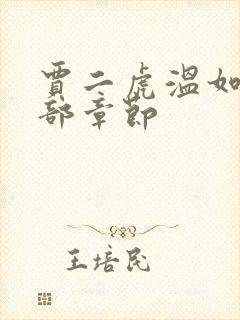 賈二虎溫如
部章節
王培民